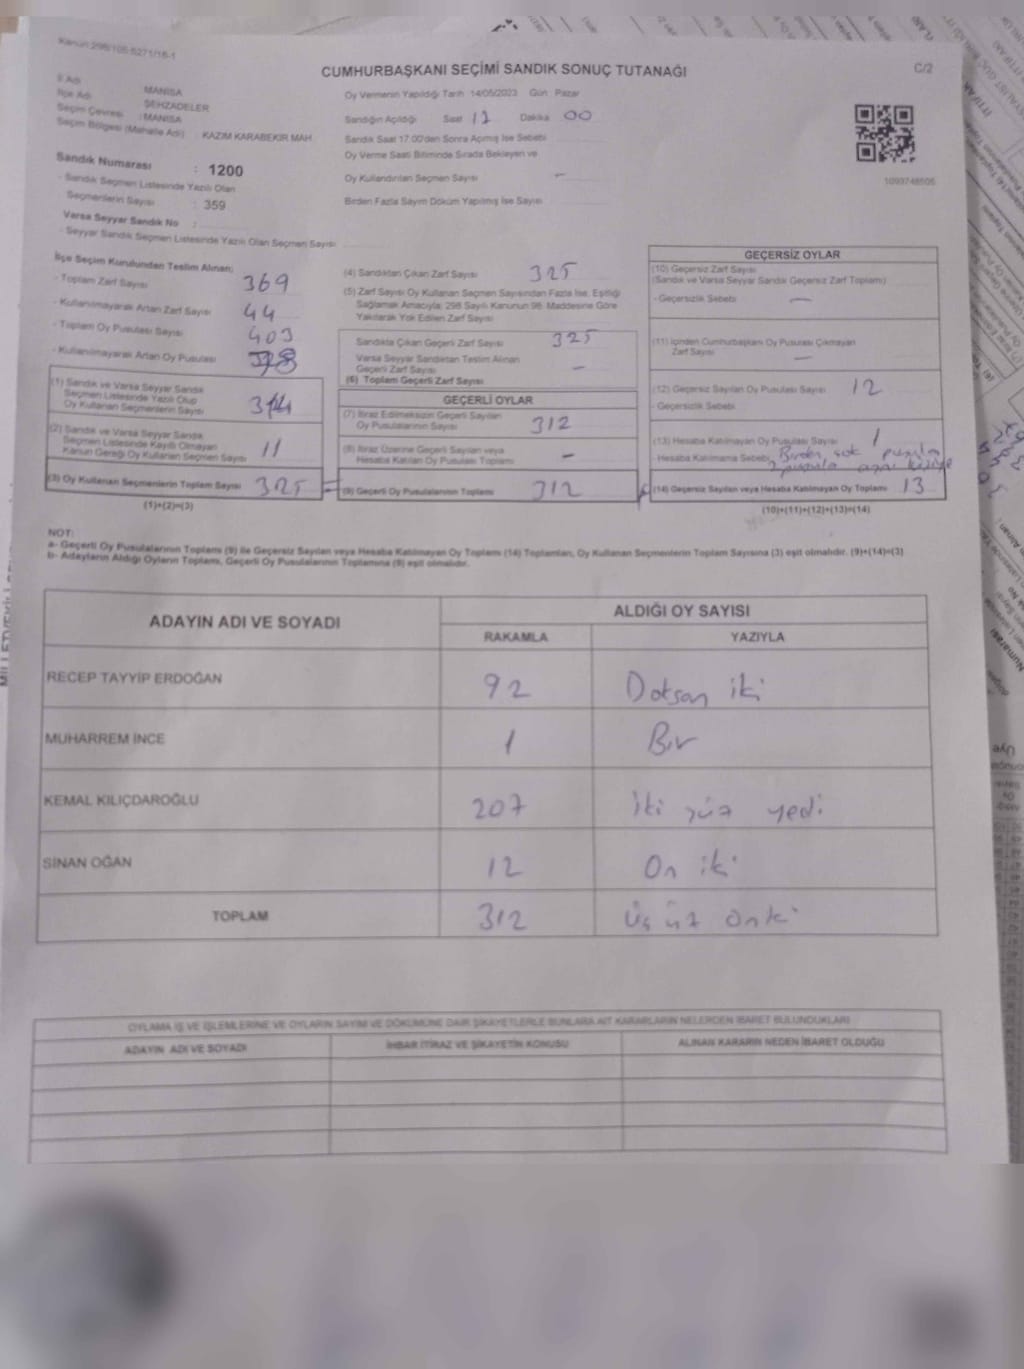 Kanun:298/105-5271/16-1
C/2
CUMHURBAŞKANI SEÇİMİ SANDIK SONUÇ TUTANAĞI
İl Adı MANİSA
İlçe Adı ŞEHZADELER
Seçim Çevresi : MANİSA
Seçim Bölgesi (Mahalle Adı) : KAZIM KARABEKİR MAH.
Sandık Numarası : 1200
- Sandık Seçmen Listesinde Yazılı Olan
Seçmenlerin Sayısı : 359
Varsa Seyyar Sandık No :
- Seyyar Sandık Seçmen Listesinde Yazılı Olan Seçmen Sayısı
Oy Vermenin Yapıldığı Tarih 14/05/2023 Gün Pazar
Sandığın Açıldığı Saat Dakika 00
Sandık Saat 17:00'den Sonra Açılmış İse Sebebi
Oy Verme Saati Bitiminde Sırada Bekleyen ve
Oy Kullandırılan Seçmen Sayısı -
Birden Fazla Sayım Döküm Yapılmış İse Sayısı
1093748505
İlçe Seçim Kurulundan Teslim Alınan;
- Toplam Zarf Sayısı 369
- Kullanılmayarak Artan Zarf Sayısı 44
- Toplam Oy Pusulası Sayısı 403
- Kullanılmayarak Artan Oy Pusulası
(1) Sandık ve Varsa Seyyar Sandık
Seçmen Listesinde Yazılı Olup
Oy Kullanan Seçmenlerin Sayısı 314
(2) Sandık ve Varsa Seyyar Sandık
Seçmen Listesinde Kayıtlı Olmayan
Kanun Gereği Oy Kullanan Seçmen Sayısı 11
(3) Oy Kullanan Seçmenlerin Toplam Sayısı 325
(1)+(2)=(3)
(4) Sandıktan Çıkan Zarf Sayısı 325
(5) Zarf Sayısı Oy Kullanan Seçmen Sayısından Fazla İse, Eşitliği
Sağlamak Amacıyla; 298 Sayılı Kanunun 98. Maddesine Göre
Yakılarak Yok Edilen Zarf Sayısı
Sandıkta Çıkan Geçerli Zarf Sayısı 325
Varsa Seyyar Sandıktan Teslim Alınan
Geçerli Zarf Sayısı -
(6) Toplam Geçerli Zarf Sayısı
GEÇERLİ OYLAR
(7) İtiraz Edilmeksizin Geçerli Sayılan
Oy Pusulalarının Sayısı 312
(8) İtiraz Üzerine Geçerli Sayılan veya
Hesaba Katılan Oy Pusulası Toplamı -
(9) Geçerli Oy Pusulalarının Toplamı 312
GEÇERSİZ OYLAR
(10) Geçersiz Zarf Sayısı
(Sandık ve Varsa Seyyar Sandık Geçersiz Zarf Toplamı)
- Geçersizlik Sebebi -
(11) İçinden Cumhurbaşkanı Oy Pusulası Çıkmayan
Zarf Sayısı -
(12) Geçersiz Sayılan Oy Pusulası Sayısı 12
- Geçersizlik Sebebi
(13) Hesaba Katılmayan Oy Pusulası Sayısı 1
- Hesaba Katılmama Sebebi Birden çok pusula
(14) Geçersiz Sayılan veya Hesaba Katılmayan Oy Toplamı 13
(10)+(11)+(12)+(13)=(14)
NOT:
a- Geçerli Oy Pusulalarının Toplamı (9) ile Geçersiz Sayılan veya Hesaba Katılmayan Oy Toplamı (14) Toplamları, Oy Kullanan Seçmenlerin Toplam Sayısına (3) eşit olmalıdır. (9)+(14)=(3)
b- Adayların Aldığı Oyların Toplamı, Geçerli Oy Pusulalarının Toplamına (9) eşit olmalıdır.
ADAYIN ADI VE SOYADI
ALDIĞI OY SAYISI
RAKAMLA YAZIYLA
RECEP TAYYİP ERDOĞAN 92 Doksan iki
MUHARREM İNCE 1 Bir
KEMAL KILIÇDAROĞLU 207 İki yüz yedi
SİNAN OĞAN 12 On iki
TOPLAM 312 Üç yüz oniki
OYLAMA İŞ VE İŞLEMLERİNE VE OYLARIN SAYIM VE DÖKÜMÜNE DAİR ŞİKAYETLERLE BUNLARA AİT KARARLARIN NELERDEN İBARET BULUNDUKLARI
ADAYIN ADI VE SOYADI İHBAR İTİRAZ VE ŞİKAYETİN KONUSU ALINAN KARARIN NEDEN İBARET OLDUĞU